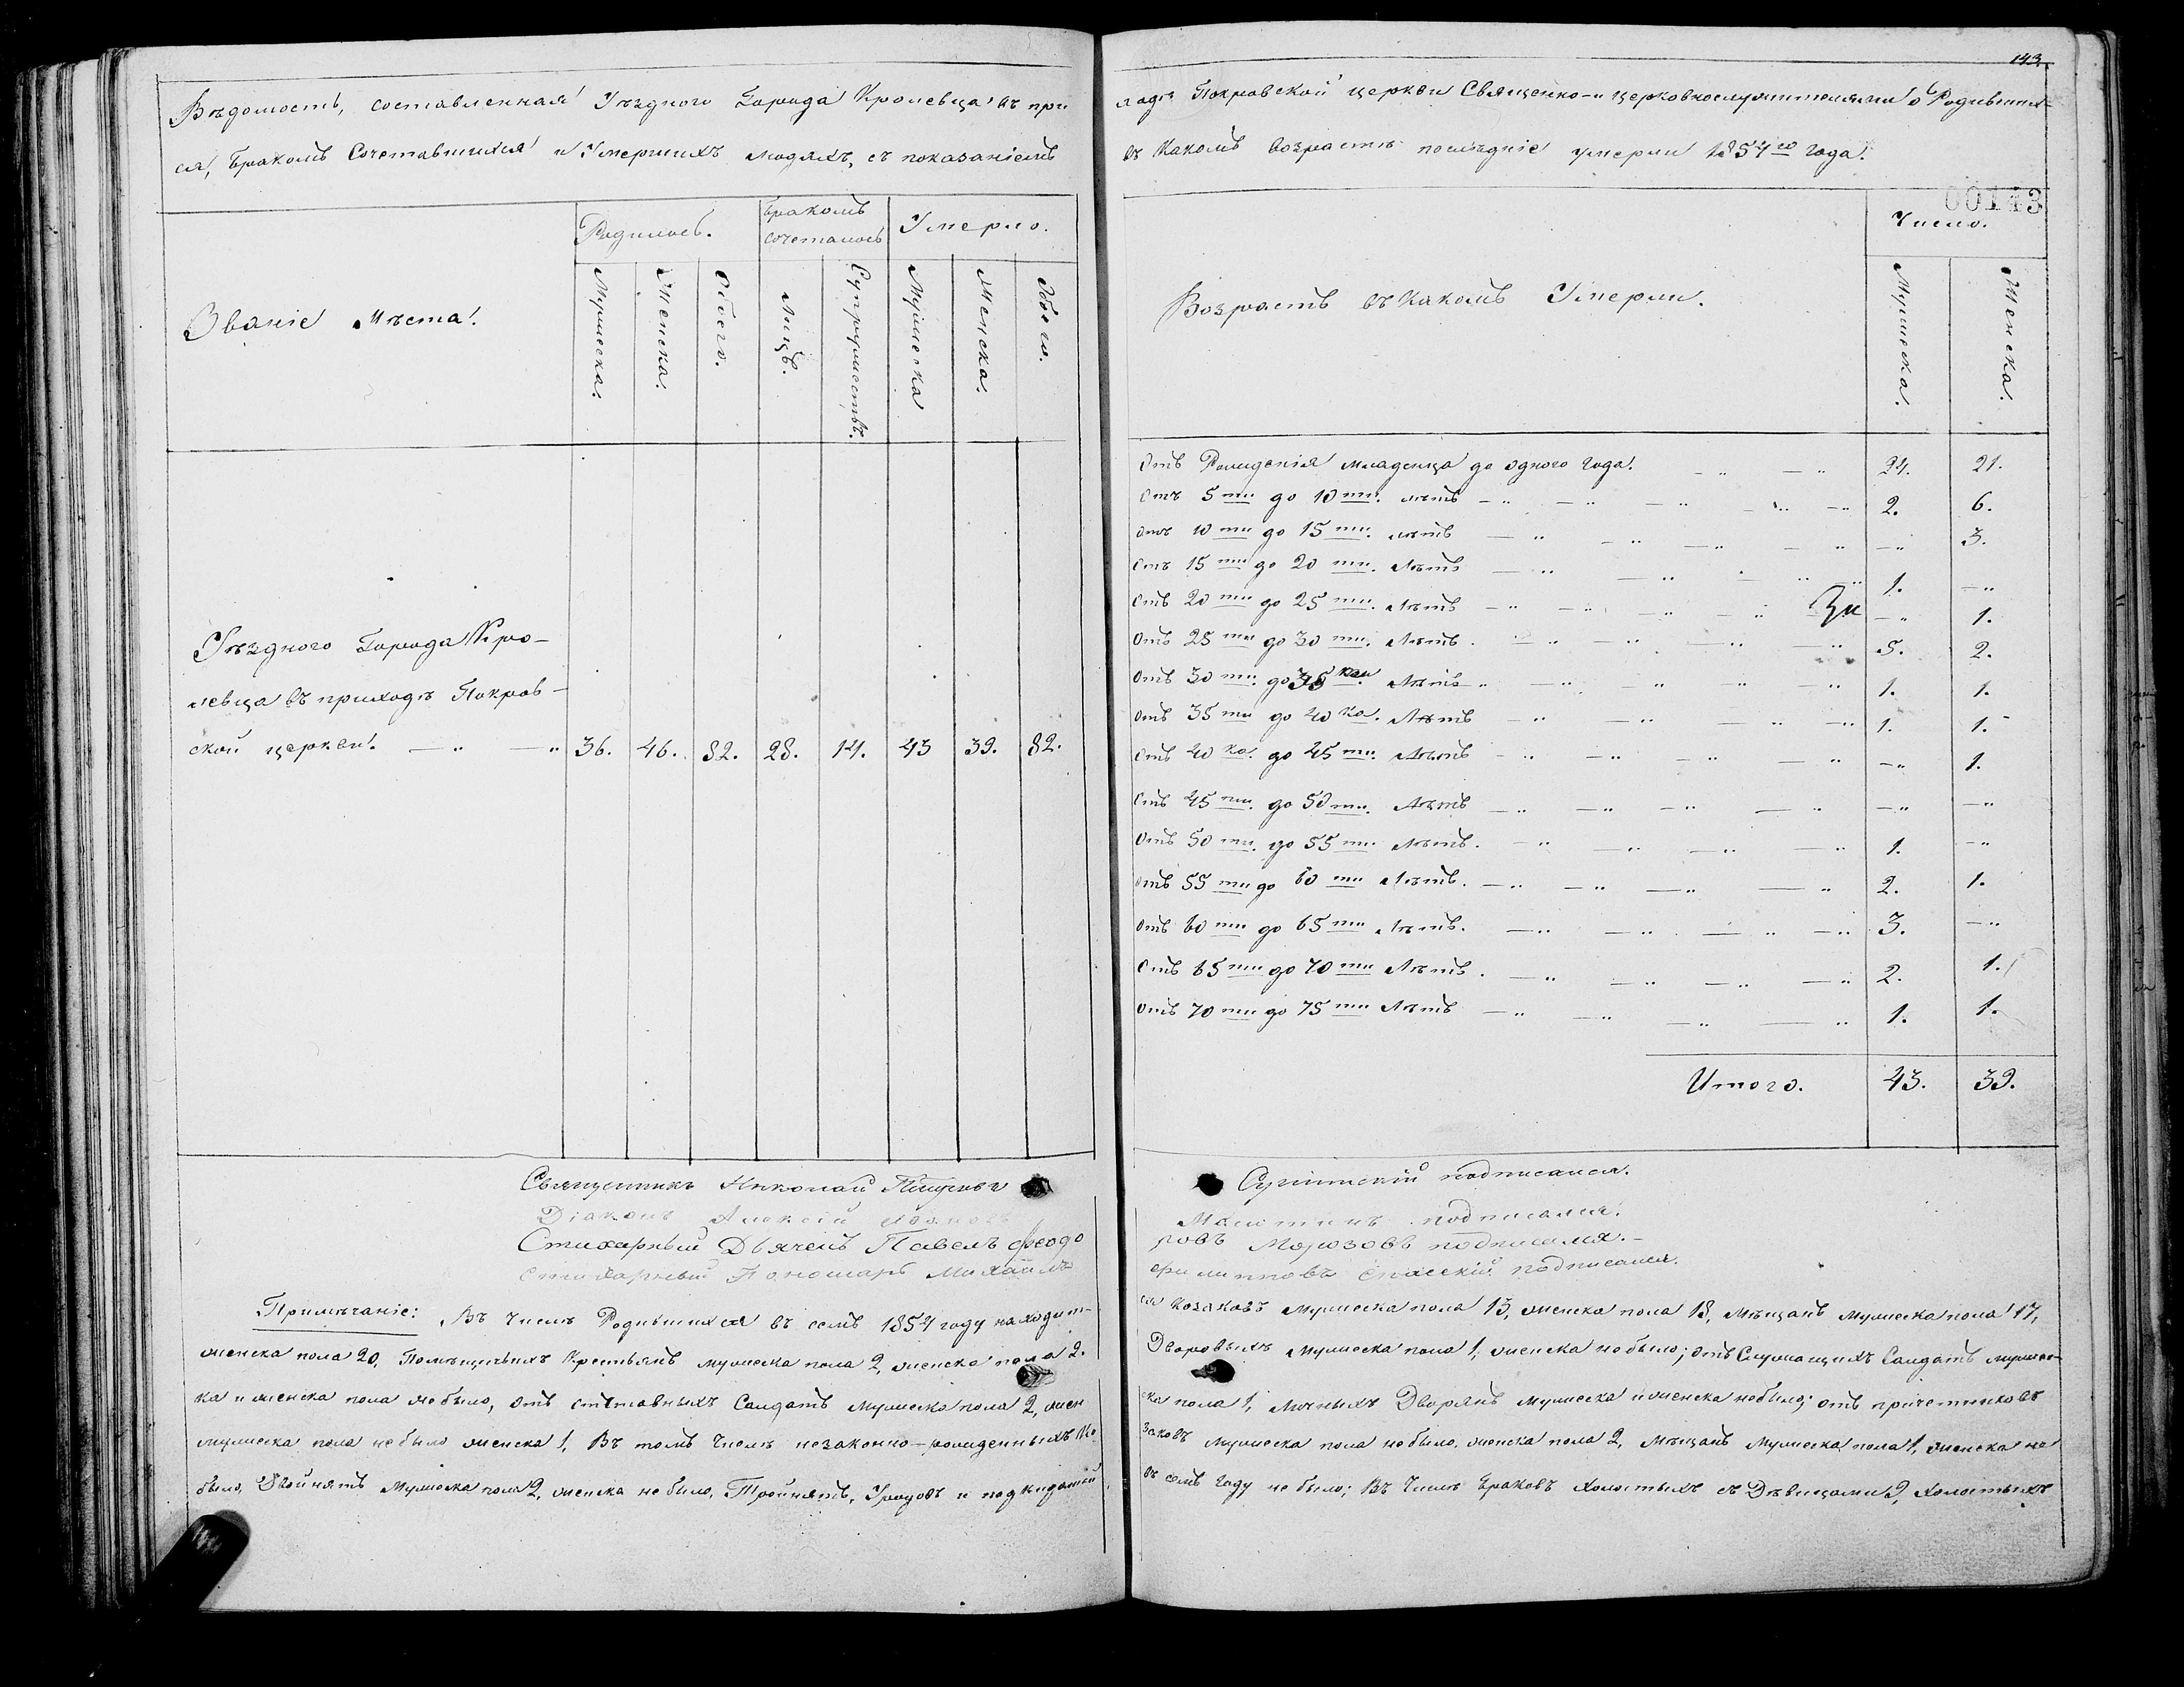 143.
Вѣдомость, составленная Уѣзднаго Города Кролевца въ при
ся, бракомъ Сочетавшихся и Умершихъ людяхъ, съ показаніемъ
ходѣ Покровской церкви Священно- и церковнослужителями о Родивших-
въ какомъ возрастѣ послѣдніе умерли 1854го года.
00143
Званіе Мѣста.
Родилось.
Бракомъ сочеталось
Умерло.
Мужеска.
Женска.
Обоего.
Лицъ.
Супружествъ.
Мужеска
Женска.
Обоего.
Уѣзднаго Города Кро-
левца въ приходѣ Покров-
ской церкви. 36. 46. 82. 28. 14. 43 39. 82.
Возрастъ въ какомъ Умерли.
Число.
Мужеска.
Женска.
Отъ Рожденія младенца до одного года. 24. 21.
Отъ 5ти до 10ти лѣтъ 2. 6.
Отъ 10ти до 15ти лѣтъ — 3.
Отъ 15ти до 20ти Лѣтъ 1. —
Отъ 20ти до 25ти Лѣтъ — 1.
Отъ 25ти до 30ти Лѣтъ 5. 2.
Отъ 30ти до 35 Лѣтъ 1. 1.
Отъ 35ти до 40ка Лѣтъ 1. 1.
Отъ 40ка до 45ти Лѣтъ — 1.
Отъ 45ти до 50ти Лѣтъ — —
Отъ 50ти до 55ти Лѣтъ. 1. —
Отъ 55ти до 60ти Лѣтъ. 2. 1.
Отъ 60ти до 65ти Лѣтъ. 3. —
Отъ 65ти до 70ти Лѣтъ. 2. 1.
Отъ 70ти до 75ти Лѣтъ 1. 1.
Итого. 43. 39.
Священникъ Николай
Діаконъ Алексій
Стихарный Дьячекъ Павелъ Феодо
стихарный Пономарь Михаилъ
подписался.
подписался.
ровъ Морозовъ подписался.
Филипповъ Спасскій подписался.
Примѣчаніе: Въ числѣ Родившихся въ семъ 1854 году находит-
ся козаковъ мужеска пола 13, женска пола 18, Мѣщанъ мужеска пола 17,
женска пола 20, Помѣщичьихъ Крестьянъ мужеска пола 2, женска пола 2.
Дворовыхъ мужеска пола 1, женска небыло; отъ Служащихъ Солдатъ мужес-
ка и женска пола небыло, отъ отставныхъ Солдатъ мужеска пола 2, жен
ска пола 1, Личныхъ Дворянъ мужеска и женска небыло; отъ причетниковъ
мужеска пола небыло женска 1. Въ томъ числѣ незаконно-рожденныхъ Ко-
заковъ мужеска пола небыло, женска пола 2, Мѣщанъ мужеска пола 1, женска не
было, Двойнятъ мужеска пола 2, женска небыло, Тройнятъ, Уродовъ и подкидышей
въ семъ году небыло; Въ Числѣ Браковъ холостыхъ съ Дѣвицами 9, Холостыхъ